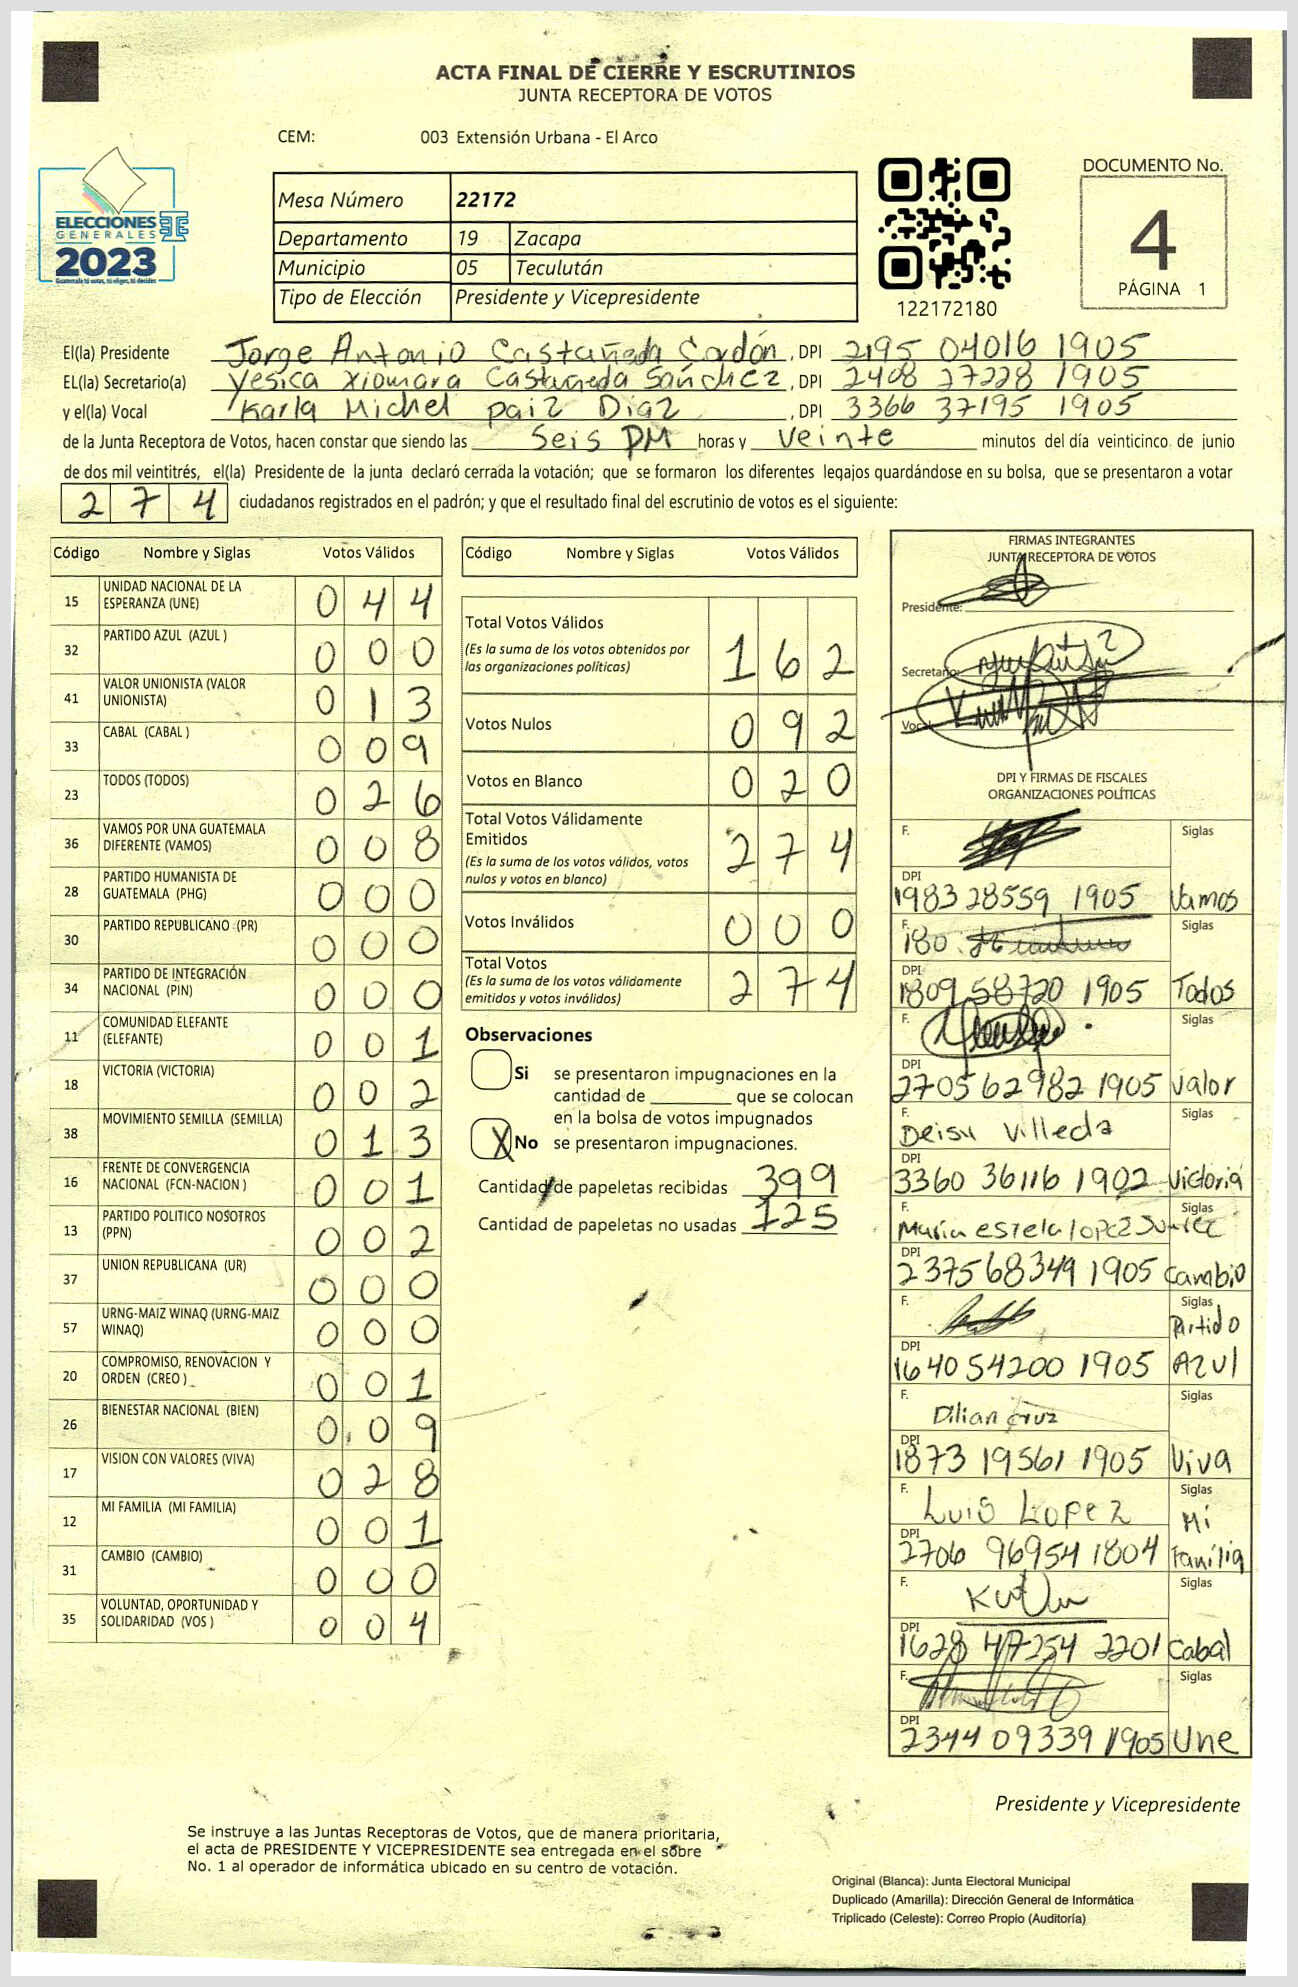 ACTA FINAL DE CIERRE Y ESCRUTINIOS
JUNTA RECEPTORA DE VOTOS
CEM: 003 Extensión Urbana - El Arco
ELECCIONES
GENERALES
2023
Guatemala tú votas, tú eliges, tú decides
Mesa Número 22172
Departamento 19 Zacapa
Municipio 05 Teculután
Tipo de Elección Presidente y Vicepresidente
122172180
DOCUMENTO No.
4
PÁGINA 1
El(la) Presidente Jorge Antonio Castañeda Cordón, DPI 2195 04016 1905
EL(la) Secretario(a) Yesica Xiomara Castañeda Sánchez, DPI 2408 27228 1905
y el(la) Vocal Karla Michel paiz Diaz, DPI 3366 37195 1905
de la Junta Receptora de Votos, hacen constar que siendo las Seis PM horas y veinte minutos del día veinticinco de junio
de dos mil veintitrés, el(la) Presidente de la junta declaró cerrada la votación; que se formaron los diferentes legajos guardándose en su bolsa, que se presentaron a votar
274 ciudadanos registrados en el padrón; y que el resultado final del escrutinio de votos es el siguiente:
Código Nombre y Siglas Votos Válidos
15 UNIDAD NACIONAL DE LA ESPERANZA (UNE) 044
32 PARTIDO AZUL (AZUL ) 000
41 VALOR UNIONISTA (VALOR UNIONISTA) 013
33 CABAL (CABAL ) 009
23 TODOS (TODOS) 026
36 VAMOS POR UNA GUATEMALA DIFERENTE (VAMOS) 008
28 PARTIDO HUMANISTA DE GUATEMALA (PHG) 000
30 PARTIDO REPUBLICANO (PR) 000
34 PARTIDO DE INTEGRACIÓN NACIONAL (PIN) 000
11 COMUNIDAD ELEFANTE (ELEFANTE) 001
18 VICTORIA (VICTORIA) 002
38 MOVIMIENTO SEMILLA (SEMILLA) 013
16 FRENTE DE CONVERGENCIA NACIONAL (FCN-NACION ) 001
13 PARTIDO POLITICO NOSOTROS (PPN) 002
37 UNION REPUBLICANA (UR) 000
57 URNG-MAIZ WINAQ (URNG-MAIZ WINAQ) 000
20 COMPROMISO, RENOVACION Y ORDEN (CREO ) 001
26 BIENESTAR NACIONAL (BIEN) 009
17 VISION CON VALORES (VIVA) 028
12 MI FAMILIA (MI FAMILIA) 001
31 CAMBIO (CAMBIO) 000
35 VOLUNTAD, OPORTUNIDAD Y SOLIDARIDAD (VOS ) 004
Código Nombre y Siglas Votos Válidos
Total Votos Válidos 162
(Es la suma de los votos obtenidos por
las organizaciones políticas)
Votos Nulos 092
Votos en Blanco 020
Total Votos Válidamente
Emitidos 274
(Es la suma de los votos válidos, votos
nulos y votos en blanco)
Votos Inválidos 000
Total Votos 274
(Es la suma de los votos válidamente
emitidos y votos inválidos)
Observaciones
Si se presentaron impugnaciones en la
cantidad de ________ que se colocan
en la bolsa de votos impugnados
X No se presentaron impugnaciones.
Cantidad de papeletas recibidas 399
Cantidad de papeletas no usadas 125
FIRMAS INTEGRANTES
JUNTA RECEPTORA DE VOTOS
Presidente:
Secretario:
Vocal
DPI Y FIRMAS DE FISCALES
ORGANIZACIONES POLÍTICAS
F. Siglas
DPI
1983 28559 1905 Vamos
F. 180 Siglas
DPI
1809 58720 1905 Todos
F. Siglas
DPI
2705 62982 1905 Valor
F. Siglas
Deisu Villeda
DPI
3360 36116 1902 Victoria
F. Siglas
Maria estela lopez Suarez
DPI
2375 68349 1905 Cambio
F. Siglas
Partido
DPI
1640 54200 1905 AZUl
F. Siglas
Dilian cruz
DPI
1873 19561 1905 Viva
F. Siglas
Luis Lopez Mi
DPI
2706 96954 1804 Familia
F. Siglas
DPI
1628 47254 2201 Cabal
F. Siglas
DPI
2344 09339 1905 Une
Presidente y Vicepresidente
Se instruye a las Juntas Receptoras de Votos, que de manera prioritaria,
el acta de PRESIDENTE Y VICEPRESIDENTE sea entregada en el sobre
No. 1 al operador de informática ubicado en su centro de votación.
Original (Blanca): Junta Electoral Municipal
Duplicado (Amarilla): Dirección General de Informática
Triplicado (Celeste): Correo Propio (Auditoría)